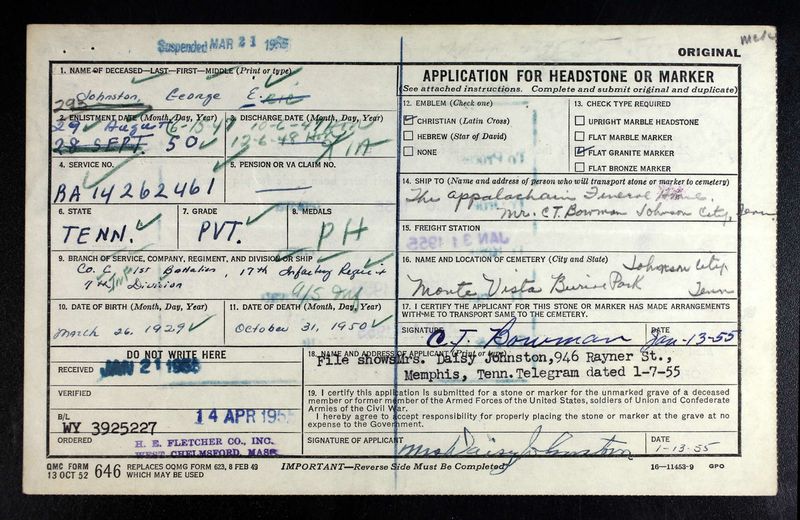 Suspended MAR 21 1955
ORIGINAL
1. NAME OF DECEASED—LAST—FIRST—MIDDLE (Print or type)
Johnston, George E.
2. ENLISTMENT DATE (Month, Day, Year)
3. DISCHARGE DATE (Month, Day, Year)
29 August
28 SEPT. 50
4. SERVICE NO.
5. PENSION OR VA CLAIM NO.
RA 14 262 461
6. STATE
7. GRADE
8. MEDALS
TENN.
PVT.
PH
9. BRANCH OF SERVICE, COMPANY, REGIMENT, AND DIVISION OR SHIP
Co. C, 1st Battalion, 17th Infantry Regiment
7th Inf Division
10. DATE OF BIRTH (Month, Day, Year)
11. DATE OF DEATH (Month, Day, Year)
March 26, 1929
October 31, 1950
DO NOT WRITE HERE
RECEIVED
JAN 21 1955
VERIFIED
14 APR 1955
B/L
WY 3925227
ORDERED
H. E. FLETCHER CO., INC.
WEST CHELMSFORD, MASS
APPLICATION FOR HEADSTONE OR MARKER
(See attached instructions. Complete and submit original and duplicate)
12. EMBLEM (Check one)
CHRISTIAN (Latin Cross)
HEBREW (Star of David)
NONE
13. CHECK TYPE REQUIRED
UPRIGHT MARBLE HEADSTONE
FLAT MARBLE MARKER
FLAT GRANITE MARKER
FLAT BRONZE MARKER
14. SHIP TO (Name and address of person who will transport stone or marker to cemetery)
The Appalachain Funeral Home.
Mr. C.T. Bowman Johnson City, Tenn.
15. FREIGHT STATION
16. NAME AND LOCATION OF CEMETERY (City and State)
Johnson City
Monte Vista Burial Park Tenn
17. I CERTIFY THE APPLICANT FOR THIS STONE OR MARKER HAS MADE ARRANGEMENTS
WITH ME TO TRANSPORT SAME TO THE CEMETERY.
SIGNATURE
C. T. Bowman
DATE
Jan-13-55
18. NAME AND ADDRESS OF APPLICANT (Print or type)
File shows Mrs. Daisy Johnston, 946 Rayner St.,
Memphis, Tenn. Telegram dated 1-7-55
19. I certify this application is submitted for a stone or marker for the unmarked grave of a deceased
member or former member of the Armed Forces of the United States, soldiers of Union and Confederate
Armies of the Civil War.
I hereby agree to accept responsibility for properly placing the stone or marker at the grave at no
expense to the Government.
SIGNATURE OF APPLICANT
Mrs Daisy Johnston
DATE
1-13-55
QMC FORM
13 OCT 52 646 REPLACES OQMG FORM 623, 8 FEB 49
WHICH MAY BE USED
IMPORTANT—Reverse Side Must Be Completed
16—11453-9 GPO